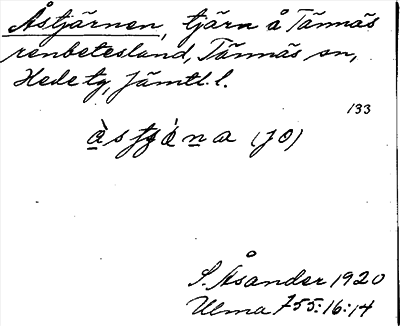 Åstjärnen, tjärn å Tännäs
renbetesland, Tännäs sn,
Hede tg, Jämtl. l.
133
(JO)
S. Åsander 1920
Ulma 755:16:14